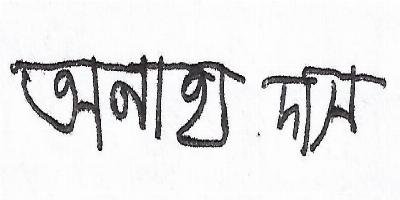 অনাথ দাস